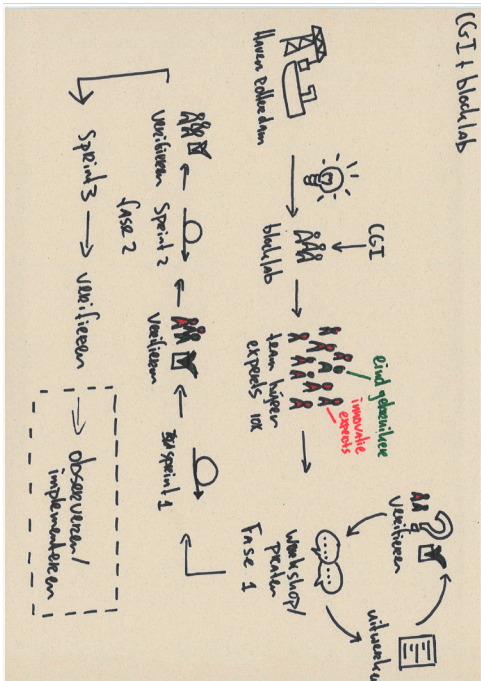 CGI + blocklab
Haven Rotterdam
CGI
blocklab
eind gebruikers
innovatie
experts
team hijzen
experts 10x
verifiëren
uitwerken
workshop/
praten
Fase 1
sprint 1
verifiëren
Sprint 2
verifiëren
fase 2
Sprint 3
verifiëren
observeren/
implementeren